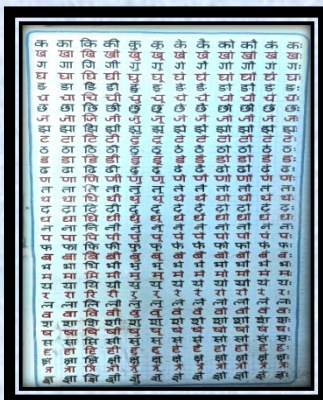 क का कि की कु कू के कै को कौ कं कः
ख खा खि खी खु खू खे खै खो खौ खं खः
ग गा गि गी गु गू गे गै गो गौ गं गः
घ घा घि घी घु घू घे घै घो घौ घं घः
ङ ङा ङि ङी ङु ङू ङे ङै ङो ङौ ङं ङः
च चा चि ची चु चू चे चै चो चौ चं चः
छ छा छि छी छु छू छे छै छो छौ छं छः
ज जा जि जी जु जू जे जै जो जौ जं जः
झ झा झि झी झु झू झे झै झो झौ झं झः
ट टा टि टी टु टू टे टै टो टौ टं टः
ठ ठा ठि ठी ठु ठू ठे ठै ठो ठौ ठं ठः
ड डा डि डी डु डू डे डै डो डौ डं डः
ढ ढा ढि ढी ढु ढू ढे ढै ढो ढौ ढं ढः
ण णा णि णी णु णू णे णै णो णौ णं णः
त ता ति ती तु तू ते तै तो तौ तं तः
थ था थि थी थु थू थे थै थो थौ थं थः
द दा दि दी दु दू दे दै दो दौ दं दः
ध धा धि धी धु धू धे धै धो धौ धं धः
न ना नि नी नु नू ने नै नो नौ नं नः
प पा पि पी पु पू पे पै पो पौ पं पः
फ फा फि फी फु फू फे फै फो फौ फं फः
ब बा बि बी बु बू बे बै बो बौ बं बः
भ भा भि भी भु भू भे भै भो भौ भं भः
म मा मि मी मु मू मे मै मो मौ मं मः
य या यि यी यु यू ये यै यो यौ यं यः
र रा रि री रु रू रे रै रो रौ रं रः
ल ला लि ली लु लू ले लै लो लौ लं लः
व वा वि वी वु वू वे वै वो वौ वं वः
श शा शि शी शु शू शे शै शो शौ शं शः
ष षा षि षी षु षू षे षै षो षौ षं षः
स सा सि सी सु सू से सै सो सौ सं सः
ह हा हि ही हु हू हे है हो हौ हं हः
क्ष क्षा क्षि क्षी क्षु क्षू क्षे क्षै क्षो क्षौ क्षं क्षः
त्र त्रा त्रि त्री त्रु त्रू त्रे त्रै त्रो त्रौ त्रं त्रः
ज्ञ ज्ञा ज्ञि ज्ञी ज्ञु ज्ञू ज्ञे ज्ञै ज्ञो ज्ञौ ज्ञं ज्ञः